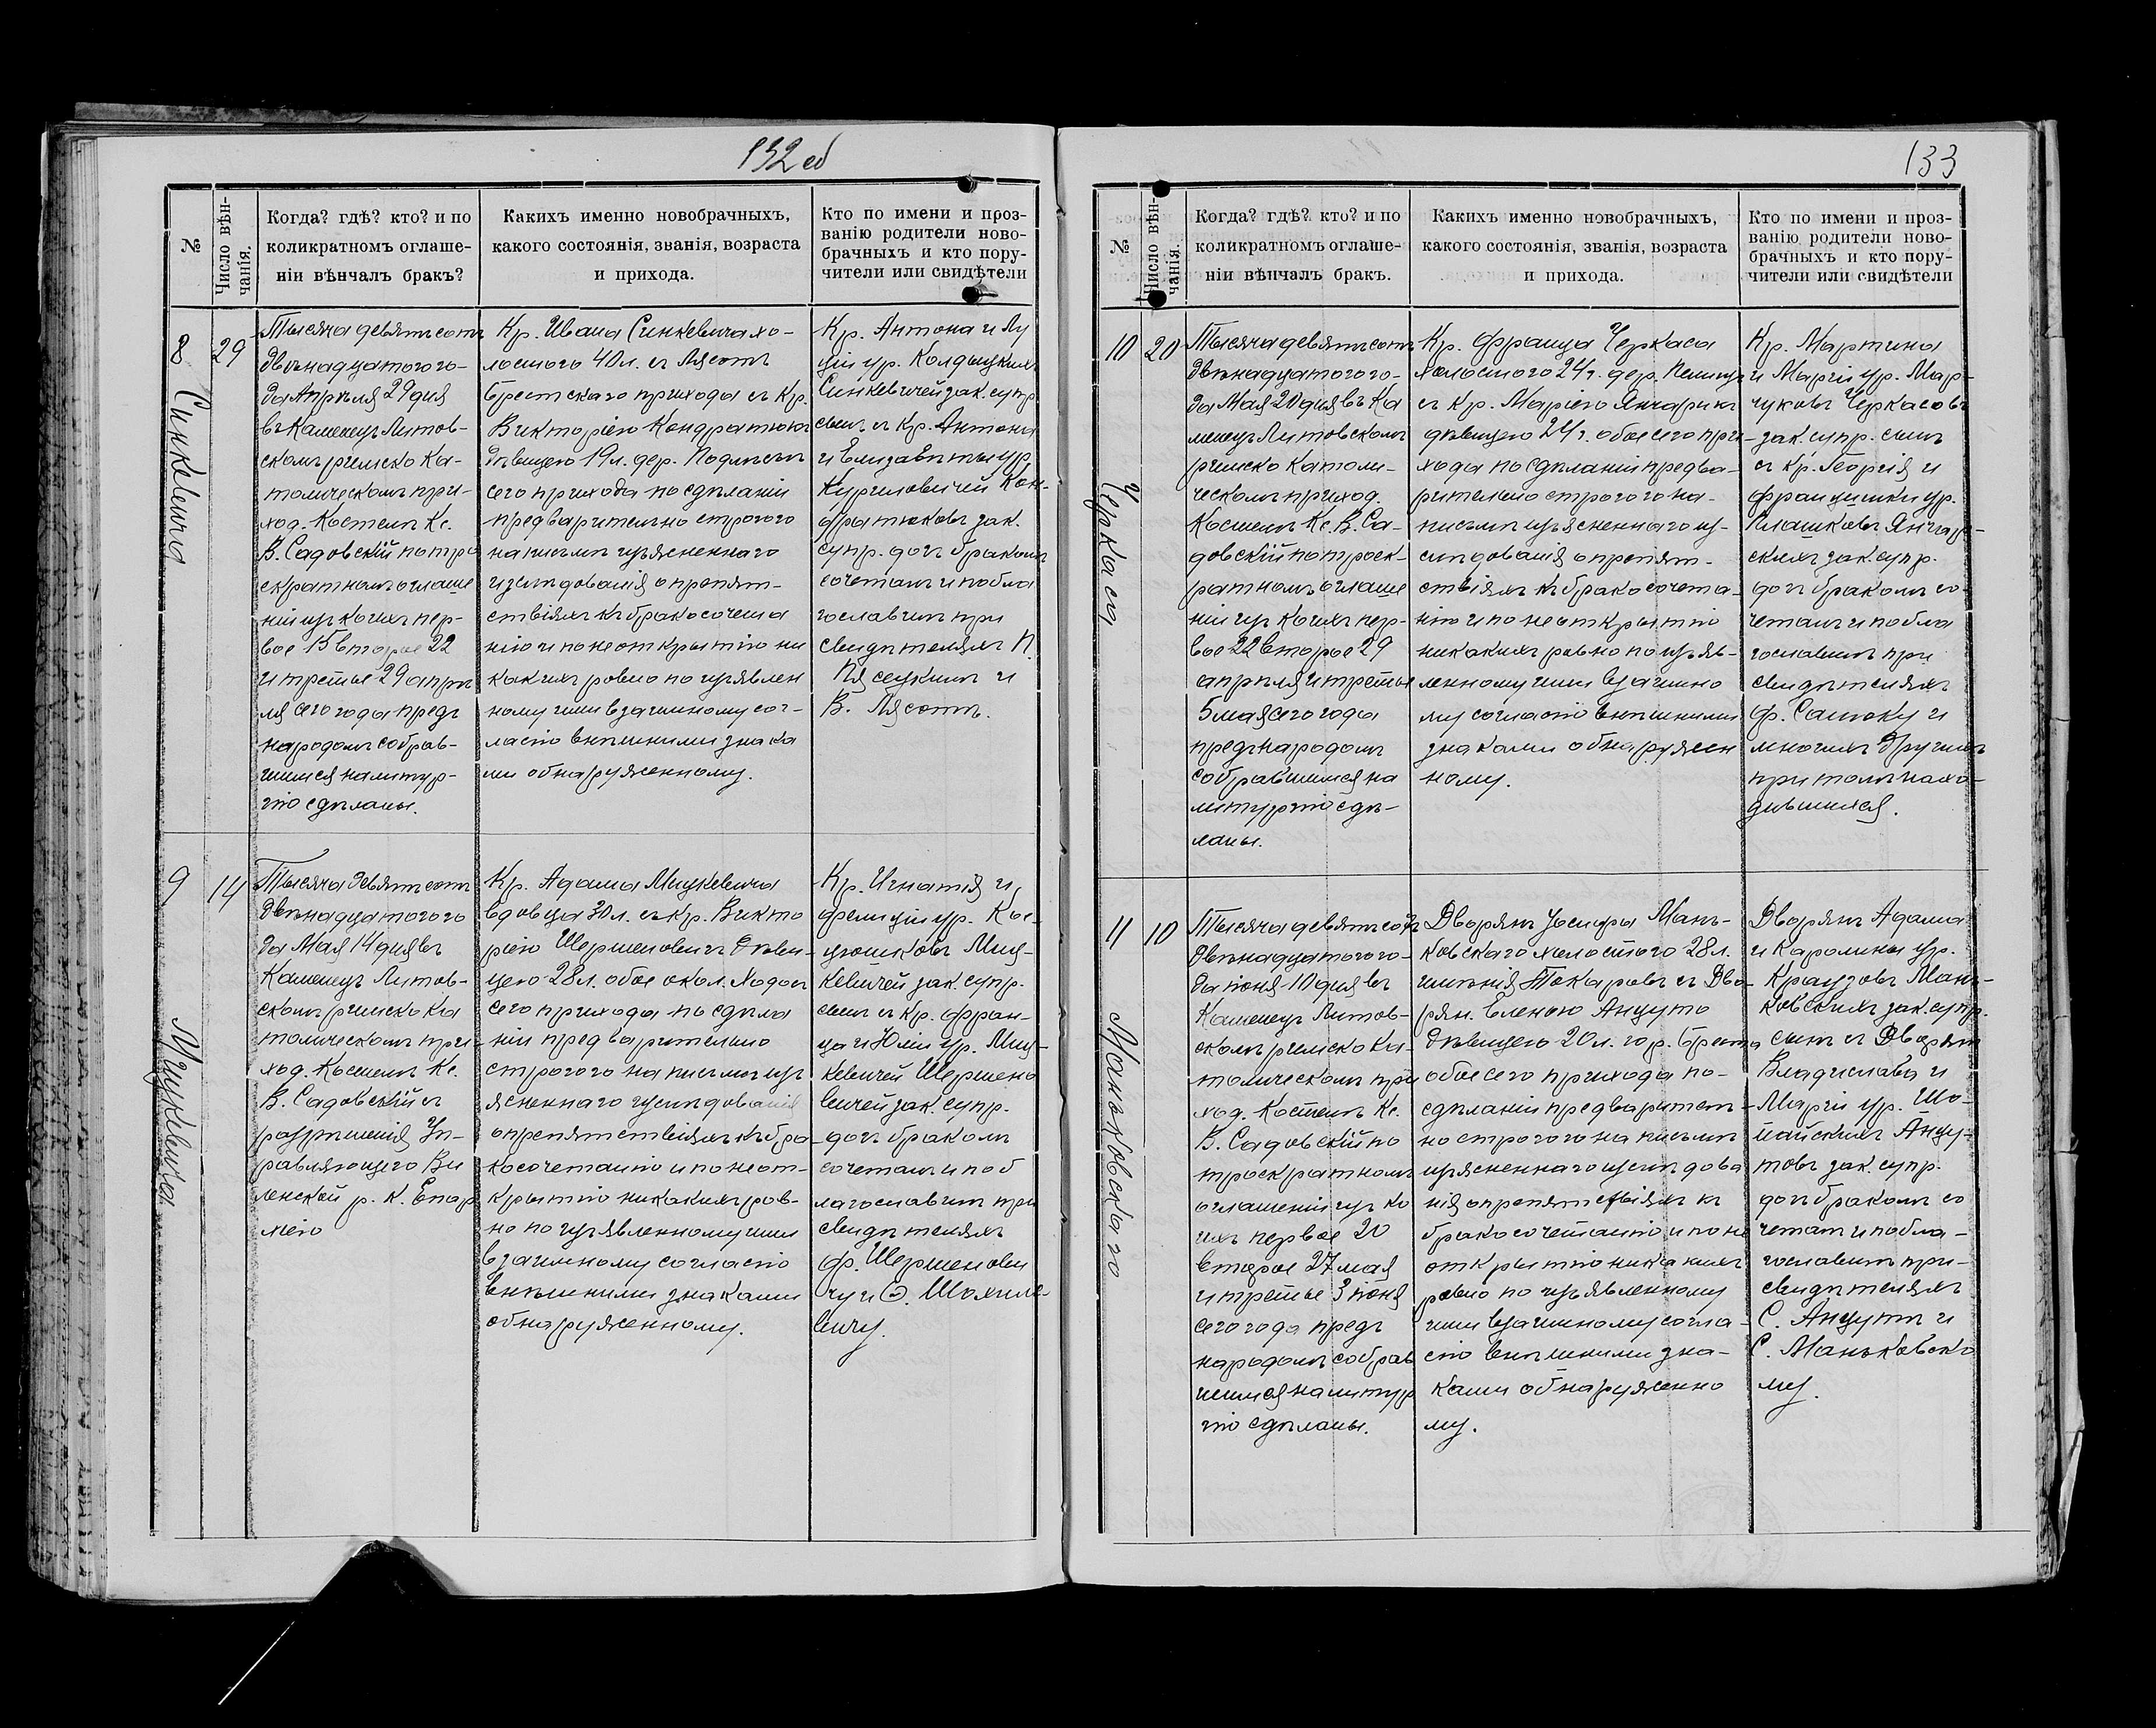 132 об
№
Число вѣн-
чанія.
Когда? гдѣ? кто? и по
коликратномъ оглаше-
ніи вѣнчалъ бракъ?
Какихъ именно новобрачныхъ,
какого состоянія, званія, возраста
и прихода.
Кто по имени и проз-
ванію родители ново-
брачныхъ и кто пору-
чители или свидѣтели
8
Синкевича
29
Тысяча девятьсотъ
двѣнадцатого го-
да Апрѣля 29 дня
въ Каменецъ Литов-
скомъ римско ка-
толическомъ при-
ход. Костелѣ Кс.
В. Садовскій по тро
екратномъ оглаше
ніи изъ коихъ пер-
вое 15 второе 22
и третье 29 апрѣ
ля сего года предъ
народомъ собрав-
шимся на литур-
гію сдѣланы.
Кр. Ивана Синкевича хо-
лостого 40 л. съ Лясотъ
Брестскаго прихода съ Кр.
Викторіею Кондратюкъ
дѣвицею 19 л. дер.
сего прихода по сдѣланіи
предварительно строгого
на письмѣ изъясненнаго
изслѣдованія о препят-
ствіяхъ къ бракосочета
нію и по неоткрытію ни
какихъ ровно по изъявлен
ному ими взаимному сог-
ласію внѣшними знака
ми обнаруженному.
Кр. Антона и Лу
ціи ур. Колдыцкихъ
Синкевичей зак. супр
сынъ съ Кр. Антона
и Елизаветы ур.
Куриловичей Кон-
дратюковъ зак.
супр. доч бракомъ
сочеталъ и побла
гославилъ при
свидѣтеляхъ П.
Пясецкимъ и
В. Лясотѣ.
9
Мицкевича
14
Тысяча девятьсотъ
двѣнадцатого го
да Мая 14 дня въ
Каменецъ Литов-
скомъ римско ка
толическомъ при-
ход. Костелѣ Кс.
В. Садовскій съ
разрѣшенія Уп-
равляющего Ви
ленской р. к. Епар
хіею
Кр. Адама Мицкевича
вдовца 30 л. съ Кр. Викто
ріею Шершеновичъ дѣви-
цею 28 л. обое окол. Ходосъ
сего прихода по сдѣла
ніи предварительно
строгого на письмѣ изъ
ясненнаго изслѣдованія
о препятствіяхъ къ бра-
косочетанію и по неот-
крытію никакихъ ров-
но по изъявленному ими
взаимному согласію
внѣшними знаками
обнаруженному.
Кр. Игнатія и
Фелиціи ур. Кос-
цюшковъ Миц-
кевичей зак. супр.
сынъ съ Кр. Фран-
ца и Юліи ур. Миц-
кевичей Шершено
вичей зак. супр.
доч бракомъ
сочеталъ и поб
лагославилъ при
свидѣтеляхъ
Ф. Шершенови
чу и Ѳ. Шохиле-
вичу.
133
№
Число вѣн-
чанія.
Когда? гдѣ? кто? и по
коликратномъ оглаше-
ніи вѣнчалъ бракъ.
Какихъ именно новобрачныхъ,
какого состоянія, званія, возраста
и прихода.
Кто по имени и проз-
ванію родители ново-
брачныхъ и кто пору-
чители или свидѣтели
10
Черкаса
20
Тысяча девятьсотъ
двѣнадцатого го-
да Мая 20 дня въ Ка
менецъ Литовскомъ
римско католи-
ческомъ приход.
Костелѣ Кс. В. Са-
довскій по троек-
ратномъ оглаше
ніи изъ коихъ пер-
вое 22 второе 29
апрѣля и третье
5 мая сего года
предъ народомъ
собравшимся на
литургію сдѣ-
ланы.
Кр. Франца Черкаса
холостого 24 г. дер.
съ Кр. Маріею Янчарикъ
дѣвицею 24 г. обое сего при-
хода по сдѣланіи предва-
рительно строгого на-
письмѣ изъясненнаго из-
слѣдованія о препят-
ствіяхъ къ бракосочета-
нію и по неоткрытію
никакихъ равно по изъяв-
ленному ими взаимно
му согласію внѣшними
знаками обнаружен
ному.
Кр. Мартина
и Маріи ур. Мар-
чуковъ Черкасовъ
зак. супр. сынъ
съ Кр. Георгія и
Францишки ур.
Плашковъ Янчар-
скихъ зак. супр.
доч бракомъ со-
четалъ и побла
гославилъ при
свидѣтеляхъ
Ф. Саноку и
многихъ другихъ
при томъ нахо-
дившихся.
11
Маньковскаго
10
Тысяча девятьсотъ
двѣнадцатого го-
да іюня 10 дня въ
Каменецъ Литов-
скомъ римско ка-
толическомъ при
ход. Костелѣ Кс.
В. Садовскій по
троекратномъ
оглашеніи изъ ко
ихъ первое 20
второе 27 мая
и третье 3 іюня
сего года предъ
народомъ собрав
шимся на литур
гію сдѣланы.
Дворянъ Іосифа Мань-
ковскаго холостого 28 л.
имѣнія Токаровъ съ Дво-
рян. Еленою Анцуто
дѣвицею 20 л. гор. Бреста
обое сего прихода по-
сдѣланіи предварител-
но строгого на письмѣ
изъясненнаго изслѣдова
нія о препятствіяхъ къ
бракосочетанію и по не
открытію никакихъ
ровно по изъявленному
ими взаимному согла-
сію внѣшними зна-
ками обнаруженно
му.
Дворянъ Адама
и Каролины ур.
Краузовъ Мань-
ковскихъ зак. супр.
сынъ съ Дворянъ
Владислава и
Маріи ур. Шо-
пайскихъ Анцу-
товъ зак. супр.
доч бракомъ со
четалъ и побла-
гославилъ при-
свидѣтеляхъ
С. Анцутѣ и
С. Маньковско
му.